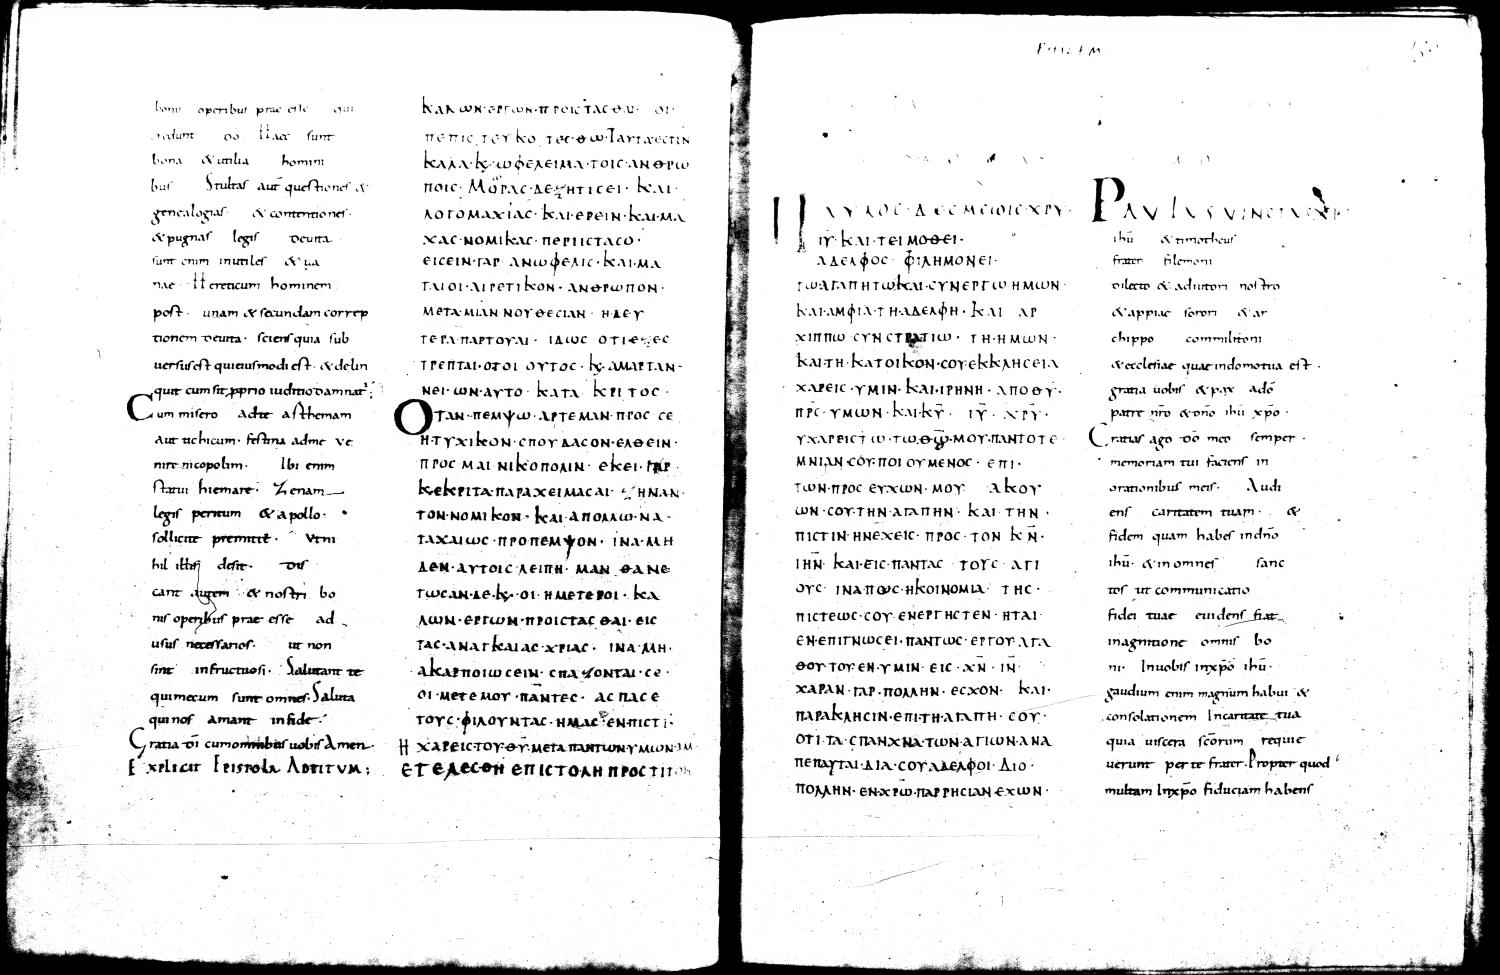 bonis operibus prae esse qui
credunt do Haec sunt
bona & utilia homini
bus Stultas aut questiones &
genealogias · & contentiones ·
& pugnas legis deuita
sunt enim inutiles & ua
nae Hereticum hominem
post · unam & secundam correp
tionem deuita · sciens quia sub
uersus est qui eiusmodi est · & delin
quit cum sit
Cum misero ad te asthemam
aut tichicum · festina adme ve
nire nicopolim · Ibi enim
statui hiemare · Zenam
legis peritum & apollo ·
sollicite premitte · Vtni
hil illis desit · Dis
cant autem & nostri bo
nis operibus prae esse ad
usus necessarios · ut non
sint infructuosi · Salutant te
qui mecum sunt omnes · Saluta
qui nos amant infide ·
Gratia di cum omnibus uobis Amen
Explicit Epistola Adtitum ;
ΚΑΛΩΝ·ΕΡΓΩΝ·ΠΡΟΙCΤΑCΘΑΙ· ΟΙ·
ΠΕΠΙCΤΕΥΚΟΤΕC·ΘΩ·ΤΑΥΤΑΕCΤΙΝ
ΚΑΛΑ·Κ·ΩΦΕΛΕΙΜΑ·ΤΟΙC·ΑΝΘΡΩ
ΠΟΙC· ΜΩΡΑC·ΔΕΖΗΤΙCΕΙ· ΚΑΙ·
ΛΟΓΟΜΑΧΙΑC·ΚΑΙ·ΕΡΕΙΝ·ΚΑΙ·ΜΑ
ΧΑC·ΝΟΜΙΚΑC·ΠΕΡΙΙCΤΑCΟ·
ΕΙCΕΙΝ·ΓΑΡ ΑΝΩΦΕΛΙC·ΚΑΙ·ΜΑ
ΤΑΙΟΙ·ΑΙΡΕΤΙΚΟΝ· ΑΝΘΡΩΠΟΝ·
ΜΕΤΑ·ΜΙΑΝ ΝΟΥΘΕCΙΑΝ· Η·ΔΕΥ
ΤΕΡΑ·ΠΑΡΤΟΥΑΙ· ΙΔΩC ΟΤΙ
ΤΡΕΠΤΑΙ·ΟΤΟΙ ΟΥΤΟC·Κ·ΑΜΑΡΤΑΝ·
ΝΕΙ·ΩΝ·ΑΥΤΟ·ΚΑΤΑ ΚΡΙΤΟC·
ΟΤΑΝ·ΠΕΜΨΩ·ΑΡΤΕΜΑΝ·ΠΡΟC CΕ
Η·ΤΥΧΙΚΟΝ·CΠΟΥΔΑCΟΝ·ΕΛΘΕΙΝ·
ΠΡΟC ΜΑΙ·ΝΙΚΟΠΟΛΙΝ·ΕΚΕΙ·ΓΑΡ·
ΚΕΚΡΙΤΑ·ΠΑΡΑΧΕΙΜΑCΑΙ· ΖΗΝΑΝ·
ΤΟΝ·ΝΟΜΙΚΟΝ·ΚΑΙ·ΑΠΟΛΛΩ·ΝΑ·
ΤΑΧΑΙΩC·ΠΡΟΠΕΜΨΟΝ· ΙΝΑ·ΜΗ
ΔΕΝ·ΑΥΤΟΙC·ΛΕΙΠΗ· ΜΑΝΘΑΝΕ
ΤΩCΑΝ·ΔΕ·Κ·ΟΙ·ΗΜΕΤΕΡΟΙ·ΚΑ
ΛΩΝ·ΕΡΓΩΝ·ΠΡΟΙCΤΑCΘΑΙ·ΕΙC
ΤΑC·ΑΝΑΓΚΑΙΑC·ΧΡΙΑC· ΙΝΑ·ΜΗ·
ΑΚΑΡΠΟΙΩCΕΙΝ·CΠΑΖΟΝΤΑΙ·CΕ·
ΟΙ·ΜΕΤΕΜΟΥ·ΠΑΝΤΕC· ΑCΠΑCΕ
ΤΟΥC·ΦΙΛΟΥΝΤΑC·ΗΜΑC·ΕΝ·ΠΙCΤΙ·
Η ΧΑΡΕΙC·ΤΟΥ·ΘΥ·ΜΕΤΑ·ΠΑΝΤΩΝ·ΥΜΩΝ·
ΕΤΕΛΕCΘΗ ΕΠΙCΤΟΛΗ ΠΡΟC ΤΙΤΟΝ
ΠΑΥΛΟC·ΔΕCΜΕΙΟΙC·ΧΡΥ·
ΙΥ·ΚΑΙ·ΤΕΙΜΟΘΕΙ·
ΑΔΕΛΦΟC· ΦΙΛΗΜΟΝΕΙ·
ΤΩ·ΑΓΑΠΗΤΩ·ΚΑΙ·CΥΝΕΡΓΩ ΗΜΩΝ·
ΚΑΙ·ΑΜΦΙΑ·ΤΗ·ΑΔΕΛΦΗ·ΚΑΙ ΑΡ
ΧΙΠΠΩ CΥΝCΤΡΑΤΙΩ· ΤΗ·ΗΜΩΝ·
ΚΑΙ·ΤΗ·ΚΑΤΟΙΚΟΝ·CΟΥ·ΕΚΚΛΗCΕΙΑ
ΧΑΡΕΙC·ΥΜΙΝ·ΚΑΙ·ΙΡΗΝΗ·ΑΠΟ·ΘΥ·
ΠΡC·ΥΜΩΝ·ΚΑΙ·ΚΥ· ΙΥ·ΧΡΥ·
ΥΧΑΡΕΙCΤΩ·ΤΩ·ΘΩ·ΜΟΥ·ΠΑΝΤΟΤΕ·
ΜΝΙΑΝ·CΟΥ·ΠΟΙΟΥΜΕΝΟC·ΕΠΙ·
ΤΩΝ·ΠΡΟC ΕΥΧΩΝ·ΜΟΥ ΑΚΟΥ
ΩΝ·CΟΥ·ΤΗΝ·ΑΓΑΠΗΝ·ΚΑΙ·ΤΗΝ·
ΠΙCΤΙΝ·ΗΝ·ΕΧΕΙC·ΠΡΟC·ΤΟΝ ΚΝ·
ΙΗΝ·ΚΑΙ·ΕΙC·ΠΑΝΤΑC ΤΟΥC ΑΓΙ
ΟΥC· ΙΝΑ·ΠΩC·Η·ΚΟΙΝΟΜΙΑ ΤΗC·
ΠΙCΤΕΩC·CΟΥ·ΕΝΕΡΓΗCΤΕΝ·ΗΤΑΙ·
ΕΝ·ΕΠΙΓΝΩCΕΙ·ΠΑΝΤΩC·ΕΡΓΟΥ·ΑΓΑ
ΘΟΥ·ΤΟΥ·ΕΝ·ΥΜΙΝ·ΕΙC·ΧΝ·ΙΝ·
ΧΑΡΑΝ·ΓΑΡ·ΠΟΛΛΗΝ·ΕCΧΟΝ· ΚΑΙ·
ΠΑΡΑΚΛΗCΙΝ·ΕΠΙ·ΤΗ·ΑΓΑΠΗ·CΟΥ·
ΟΤΙ·ΤΑ·CΠΑΝΧΝΑ·ΤΩΝ·ΑΓΙΩΝ·ΑΝΑ
ΠΕΠΑΥΤΑΙ·ΔΙΑ·CΟΥ·ΑΔΕΛΦΟΙ·ΔΙΟ·
ΠΟΛΛΗΝ·ΕΝ·ΧΡΩ·ΠΑΡΡΗCΙΑΝ·ΕΧΩΝ·
PAULUS UINCTUS XPI
ihu & timotheus
frater filemoni
dilecto & adiutori nostro
& appiae sorori & ar
chippo commilitoni
& ecclesiae quae indomotua est ·
gratia uobis & pax ado
patre nro & dno ihu xpo ·
Gratias ago do meo semper ·
memoriam tui faciens in
orationibus meis · Audi
ens caritatem tuam · &
fidem quam habes indno
ihu · & in omnes sanc
tos ut communicatio
fidei tuae euidens fiat
inagnitione omnis bo
ni · Inuobis inxpo ihu ·
gaudium enim magnum habui &
consolationem Incaritate tua
quia uiscera scorum requie
uerunt per te frater · Propter quod
multam Inxpo fiduciam habens